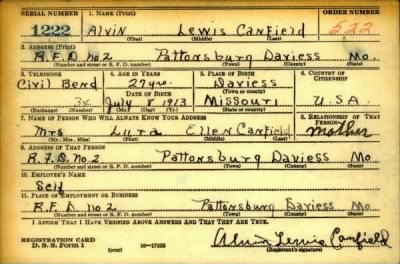 SERIAL NUMBER 1. NAME (Print) ORDER NUMBER
1222 Alvin Lewis Canfield 522
(First) (Middle) (Last)
2. ADDRESS (Print)
R.F.D. no.2 Pattonsburg Daviess Mo.
(Number and street or R. F. D. number) (Town) (County) (State)
3. TELEPHONE 4. AGE IN YEARS 5. PLACE OF BIRTH 6. COUNTRY OF CITIZENSHIP
Civil Bend 27 yrs. Daviess
(Town or county)
DATE OF BIRTH
34 July 8 1913 Missouri U.S.A.
(Exchange) (Number) (Mo.) (Day) (Yr.) (State or country)
7. NAME OF PERSON WHO WILL ALWAYS KNOW YOUR ADDRESS 8. RELATIONSHIP OF THAT PERSON
Mrs Lura Ellen Canfield Mother
(Mr., Mrs., Miss) (First) (Middle) (Last)
9. ADDRESS OF THAT PERSON
R.F.D. no.2 Pattonsburg Daviess Mo
(Number and street or R. F. D. number) (Town) (County) (State)
10. EMPLOYER'S NAME
Self
11. PLACE OF EMPLOYMENT OR BUSINESS
R.F.D. no.2 Pattonsburg Daviess Mo.
(Number and street or R. F. D. number) (Town) (County) (State)
I AFFIRM THAT I HAVE VERIFIED ABOVE ANSWERS AND THAT THEY ARE TRUE.
REGISTRATION CARD
D. S. S. Form 1 (over) 16-17105 Alvin Lewis Canfield
(Registrant's signature)